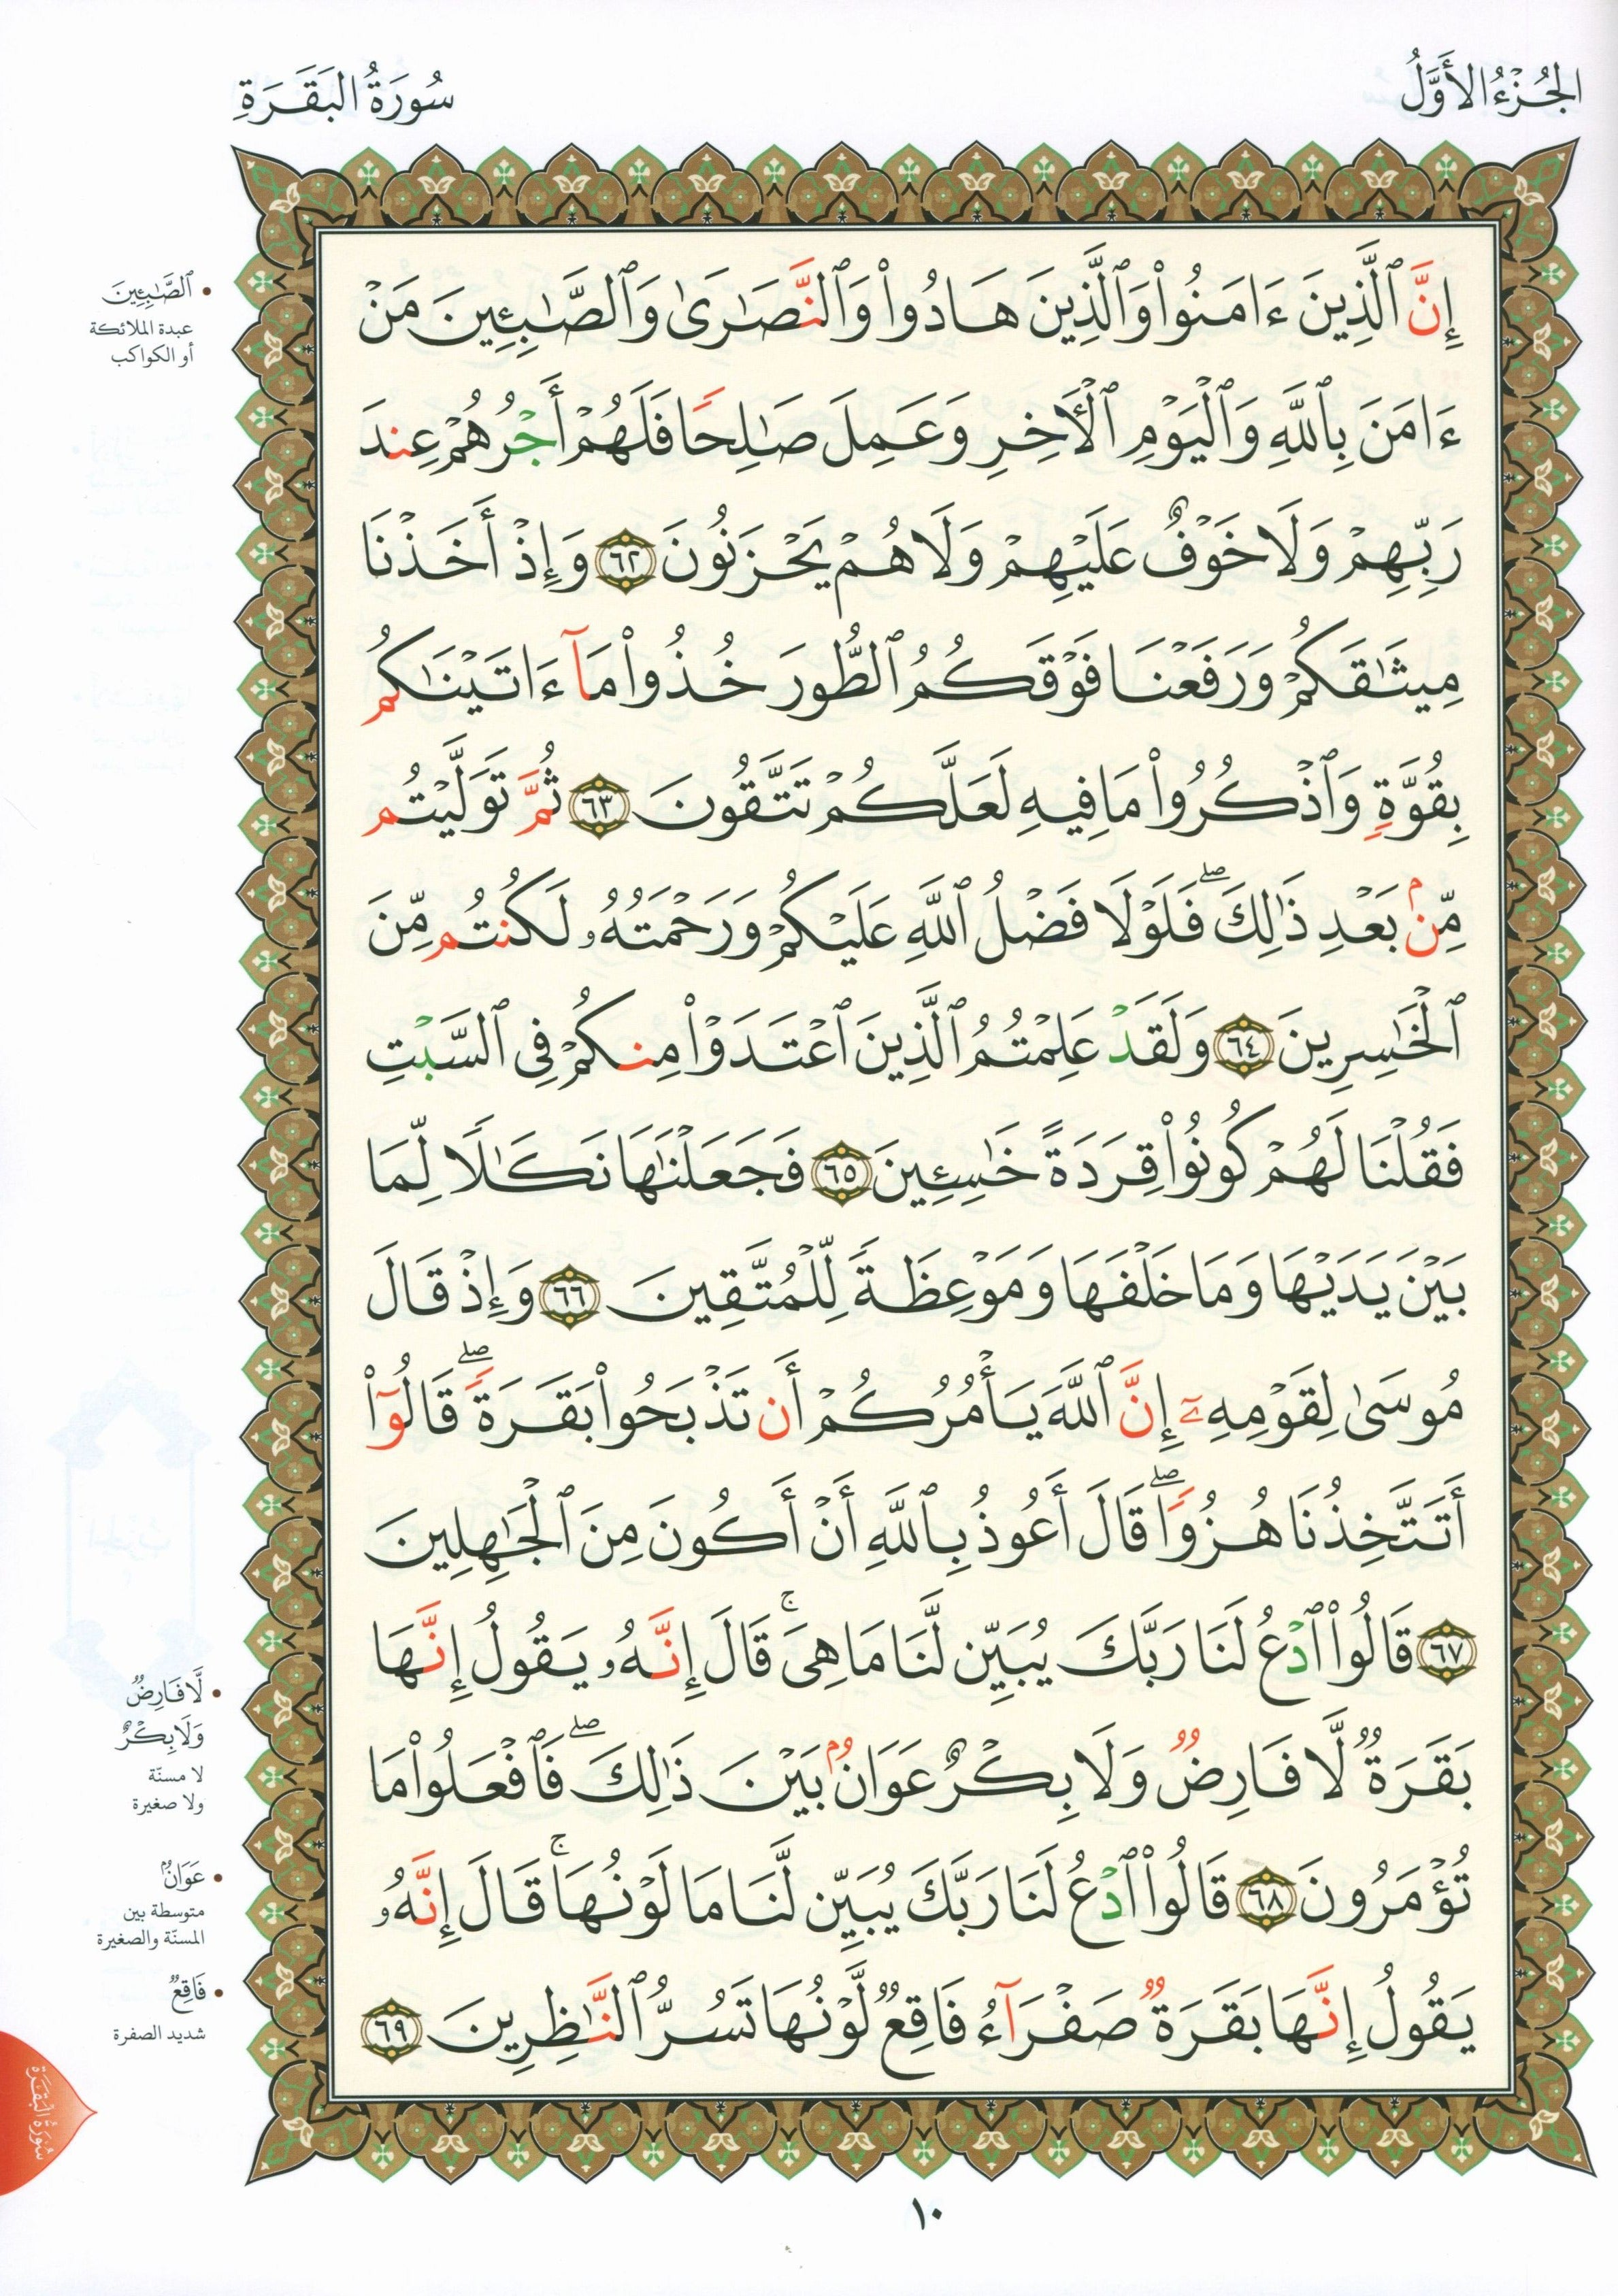 الجُزْءُ الأَوَّلُ
سُورَةُ البَقَرَةِ
إِنَّ ٱلَّذِينَ ءَامَنُواْ وَٱلَّذِينَ هَادُواْ وَٱلنَّصَٰرَىٰ وَٱلصَّٰبِـِٔينَ مَنۡ
ءَامَنَ بِٱللَّهِ وَٱلۡيَوۡمِ ٱلۡأٓخِرِ وَعَمِلَ صَٰلِحٗا فَلَهُمۡ أَجۡرُهُمۡ عِندَ
رَبِّهِمۡ وَلَا خَوۡفٌ عَلَيۡهِمۡ وَلَا هُمۡ يَحۡزَنُونَ ٦٢ وَإِذۡ أَخَذۡنَا
مِيثَٰقَكُمۡ وَرَفَعۡنَا فَوۡقَكُمُ ٱلطُّورَ خُذُواْ مَآ ءَاتَيۡنَٰكُم
بِقُوَّةٖ وَٱذۡكُرُواْ مَا فِيهِ لَعَلَّكُمۡ تَتَّقُونَ ٦٣ ثُمَّ تَوَلَّيۡتُم
مِّنۢ بَعۡدِ ذَٰلِكَۖ فَلَوۡلَا فَضۡلُ ٱللَّهِ عَلَيۡكُمۡ وَرَحۡمَتُهُۥ لَكُنتُم مِّنَ
ٱلۡخَٰسِرِينَ ٦٤ وَلَقَدۡ عَلِمۡتُمُ ٱلَّذِينَ ٱعۡتَدَوۡاْ مِنكُمۡ فِي ٱلسَّبۡتِ
فَقُلۡنَا لَهُمۡ كُونُواْ قِرَدَةً خَٰسِـِٔينَ ٦٥ فَجَعَلۡنَٰهَا نَكَٰلٗا لِّمَا
بَيۡنَ يَدَيۡهَا وَمَا خَلۡفَهَا وَمَوۡعِظَةٗ لِّلۡمُتَّقِينَ ٦٦ وَإِذۡ قَالَ
مُوسَىٰ لِقَوۡمِهِۦٓ إِنَّ ٱللَّهَ يَأۡمُرُكُمۡ أَن تَذۡبَحُواْ بَقَرَةٗۖ قَالُوٓاْ
أَتَتَّخِذُنَا هُزُوٗاۖ قَالَ أَعُوذُ بِٱللَّهِ أَنۡ أَكُونَ مِنَ ٱلۡجَٰهِلِينَ
٦٧ قَالُواْ ٱدۡعُ لَنَا رَبَّكَ يُبَيِّن لَّنَا مَا هِيَۚ قَالَ إِنَّهُۥ يَقُولُ إِنَّهَا
بَقَرَةٞ لَّا فَارِضٞ وَلَا بِكۡرٌ عَوَانُۢ بَيۡنَ ذَٰلِكَۖ فَٱفۡعَلُواْ مَا
تُؤۡمَرُونَ ٦٨ قَالُواْ ٱدۡعُ لَنَا رَبَّكَ يُبَيِّن لَّنَا مَا لَوۡنُهَاۚ قَالَ إِنَّهُۥ
يَقُولُ إِنَّهَا بَقَرَةٞ صَفۡرَآءُ فَاقِعٞ لَّوۡنُهَا تَسُرُّ ٱلنَّٰظِرِينَ ٦٩
• ٱلصَّٰبِـِٔينَ
عبدة الملائكة
أو الكواكب
• لَّا فَارِضٞ
وَلَا بِكۡرٌ
لا مسنّة
ولا صغيرة
• عَوَانُۢ
متوسطة بين
المسنّة والصغيرة
• فَاقِعٞ
شديد الصفرة
سُورَةُ البَقَرَةِ
١٠